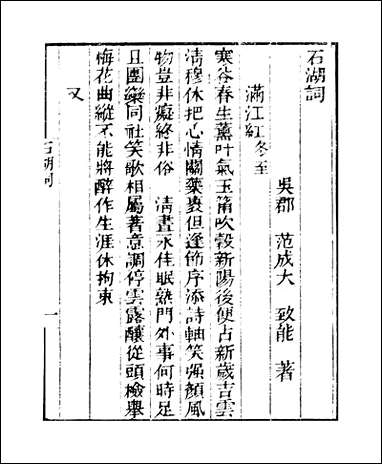 石湖詞
吳郡 范成大 致能 著
滿江紅冬至
寒谷春生薰叶氣玉筩吹穀新陽後便占新歲吉雲
淸穆休把心情關藥裹但逢節序添詩軸笑强顏風
物豈非癡終非俗 淸晝永佳眠熟門外事何時足
且團欒同社笑歌相屬著意調停雲露釀從頭檢舉
梅花曲縱不能將醉作生涯休拘束
又
石湖詞
一